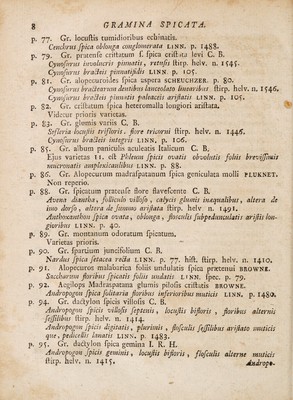 8 GRAMINA SPICATA.
p. 77. Gr. locustis tumidioribus echinatis.
Cenchrus spica oblonga conglomerata LINN. p. 1488.
p. 79. Gr. pratense cristatum s. spica cristata levi C. B.
Cynosurus involucris pinnatis, retusis stirp. helv. n. 1545.
Cynosurus bracteis pinnatifidis LINN. p. 105.
p. 81. Gr. alopecuroides spica aspera SCHEUCHZER. p. 80.
Cynosurus bractearum dentibus lanceolato linearibus stirp. helv. n. 1546.
Cynosurus bracteis pinnatis paleaceis aristatis LINN. p. 105.
p. 82. Gr. cristatum spica heteromalla longiori aristata.
Videtur prioris varietas.
p. 83. Gr. glumis variis C. B.
Sesleria locustis trifloris, flore tricorni stirp. helv. n. 1446.
Cynosurus bracteis integris LINN. p. 106.
p. 85. Gr. album paniculis aculeatis Italicum C. B.
Ejus varietas 11. est Phleum spicis ovatis obvolutis foliis brevissimis
mucronatis amplexicaulibus LINN. p. 88.
p. 86. Gr. Alopecurum madraspatanum spica geniculata molli PLUKNET.
Non reperio.
p. 88. Gr. spicatum pratense flore flavescente C. B.
Avena diantha, folliculo villoso, calycis glumis inaequalibus, altera de
imo dorso, altera de summo aristata stirp. helv. n. 1491.
Anthoxanthum spica ovata, oblonga, flosculis subpedunculatis aristis lon-
gioribus LINN. p. 40.
p. 89. Gr. montanum odoratum spicatum.
Varietas prioris.
p. 90. Gr. spartium juncifolium C. B.
Nardus spica setacea recta LINN. p. 77. hist. stirp. helv. n. 1410.
p. 91. Alopecuros malabarica foliis undulatis spica praetenui BROWNE.
Saccharum floribus spicatis foliis undatis LINN. spec. p. 79.
p. 92. Aegilops Madraspatana glumis pilosis cristatis BROWNE.
Andropogon spica solitaria floribus inferioribus muticis LINN. p. 1480.
p. 94. Gr. dactylon spicis villosis C. B.
Andropogon spicis villosis septenis, locustis bifloris, floribus alternis
sessilibus stirp. helv. n. 1414.
Andropogon spicis digitatis, plurimis, flosculis sessilibus aristato muticis
que, pedicellis lanatis LINN. p. 1483.
p. 95. Gr. dactylon spica gemina I. R. H.
Andropogon spicis geminis, locustis bifloris, flosculis alterne muticis
stirp. helv. n. 1415.
Andropo-